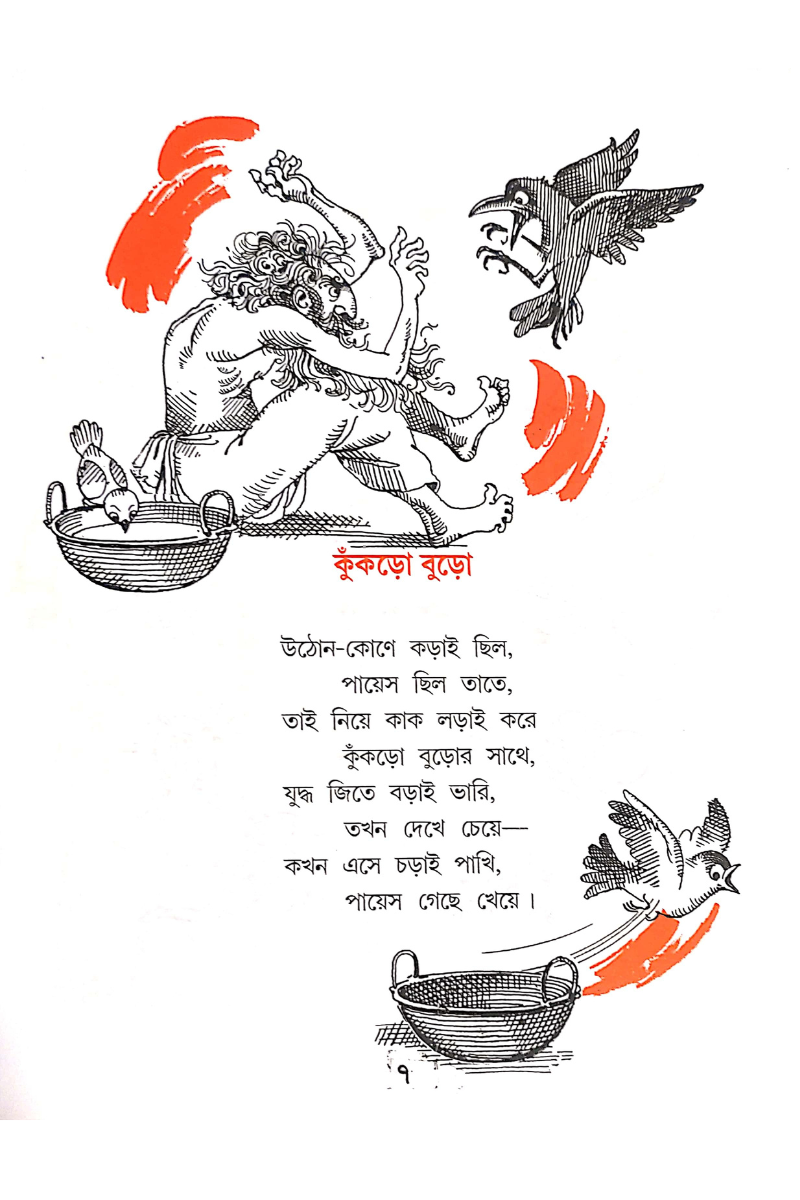 কুঁকড়ো বুড়ো
উঠোন-কোণে কড়াই ছিল,
পায়েস ছিল তাতে,
তাই নিয়ে কাক লড়াই করে
কুঁকড়ো বুড়োর সাথে,
যুদ্ধ জিতে বড়াই ভারি,
তখন দেখে চেয়ে—
কখন এসে চড়াই পাখি,
পায়েস গেছে খেয়ে।
৭